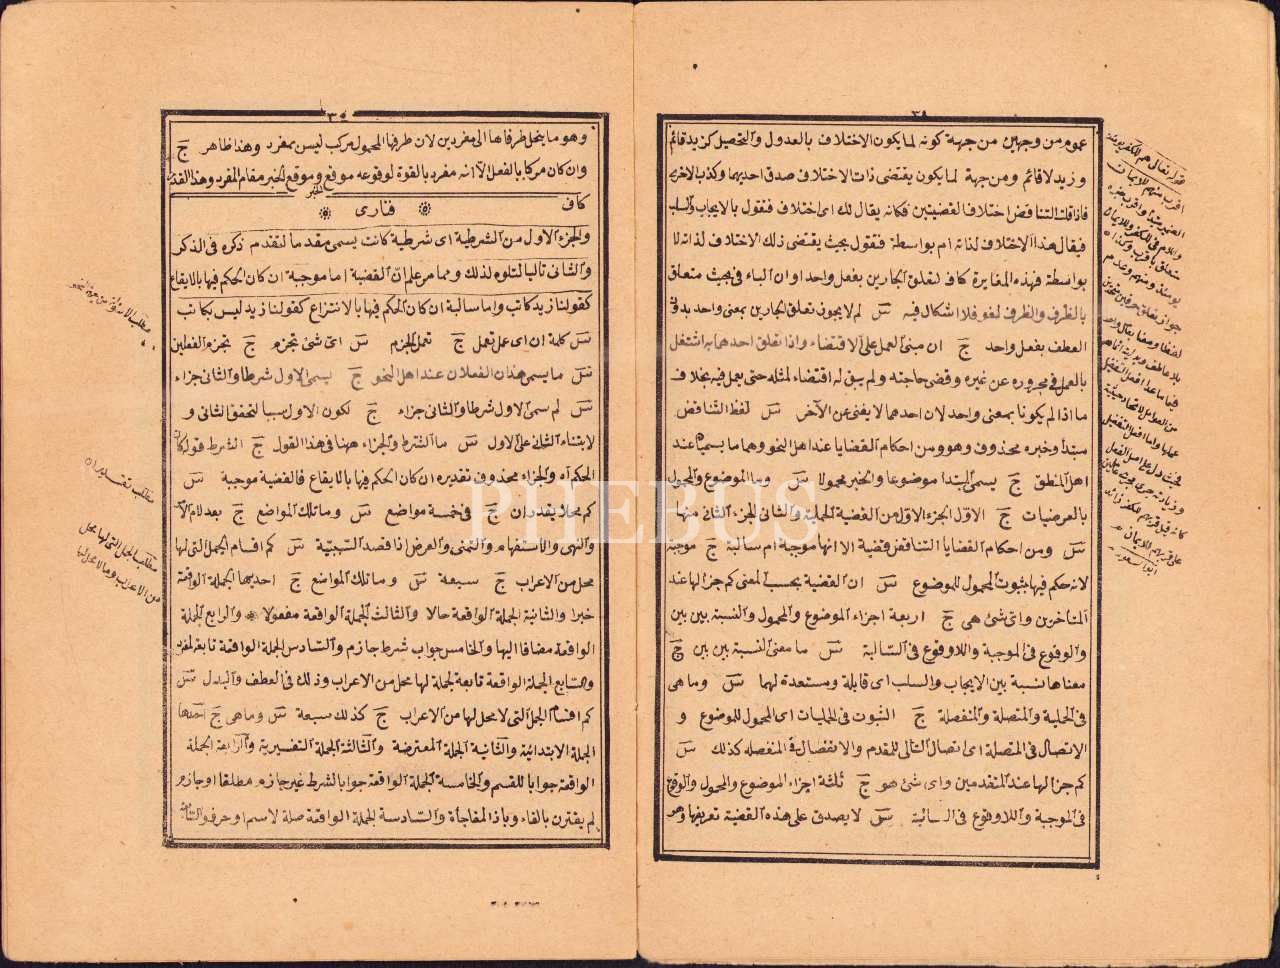 ٣٨
عموم من وجهين من جهة كونه لما يكون الاختلاف بالعدول والتحصيل كزيد قائم
وزيد لا قائم ومن جهة لما يكون يقتضى ذات الاختلاف صدق احديهما وكذب الاخرى
فاذا قلت التناقض اختلاف القضيتين فكانه يقال لك اى اختلاف فتقول بالايجاب والسلب
فيقال هذا الاختلاف لذاته ام بواسطة فتقول بحيث يقتضى ذلك الاختلاف لذاته لا
بواسطة فهذه المغايرة كاف لتعلق الجارين بفعل واحد او ان الباء فى بحيث متعلق
بالظرف والظرف لغو فلا اشكال فيه س لم لا يجوز تعلق الجارين بمعنى واحد بدون
العطف بفعل واحد ج ان مبنى العمل على الاقتضاء واذا تعلق احدهما به اشتغل
بالعمل فى مجروره عن غيره وقضى حاجته ولم يبق له اقتضاء لمثله حتى يعمل فيه بخلاف
ما اذا لم يكونا بمعنى واحد لان احدهما لا يغنى عن الآخر س لفظ التناقض
مبتدأ وخبره محذوف وهو ومن احكام القضايا عند اهل النحو وهما ما يسميهم عند
اهل المنطق ج يسمى المبتدا موضوعا والخبر محمولا س وما الموضوع والمحمول
بالعرضيات ج الاول الجزء الاول من القضية الحملية والثانى الجزء الثانى منها
س ومن احكام القضايا التناقض قضية الا انها موجبة ام سالبة ج موجبة
لانه حكم فيها بثبوت المحمول للموضوع س ان القضية بحسب المعنى كم جزأ لها عند
المتأخرين واى شئ هى ج اربعة اجزاء الموضوع والمحمول والنسبة بين بين
والوقوع فى الموجبة واللاوقوع فى السالبة س ما معنى النسبة بين بين ج
معناها نسبة بين الايجاب والسلب اى قابلة ومستعدة لهما س وما هى
فى الحملية والمتصلة والمنفصلة ج الثبوت فى الحمليات اى المحمول للموضوع و
الاتصال فى المتصلة اى اتصال التالى للمقدم والانفصال فى المنفصله كذلك س
كم جزأ لها عند المتقدمين واى شئ هو ج ثلثة اجزاء الموضوع والمحمول والوقوع
فى الموجبة واللاوقوع فى السالبة س لا يصدق على هذه القضية تعريفها وهو
هم للكفر يومئذ
اقرب منهم للايمان
ابو السعود
٣٩
وهو ما ينحل طرفاها الى مفردين لان طرفها المحمول مركب ليس بمفرد وهذا ظاهر ج
وان كان مركبا بالفعل الا انه مفرد بالقوة لوقوعه موقع وموقع الخبر مقام المفرد وهذا القدر
كاف
❊ فنارى ❊
والجزء الاول من الشرطية اى شرطية كانت يسمى مقدما لتقدم ذكره فى الذكر
والثانى تاليا لتلوه لذلك ومما مر علم ان القضية اما موجبة ان كان الحكم فيها بالايقاع
كقولنا زيد كاتب واما سالبة ان كان الحكم فيها بالانتزاع كقولنا زيد ليس بكاتب
س كلمة ان اى عمل تعمل ج تعمل الجزم س اى شئ تجزم ج تجزم الفعلين
س ما يسمى هذان الفعلان عند اهل النحو ج يسمى الاول شرطا والثانى جزاء
س لم سمى الاول شرطا والثانى جزاء ج لكون الاول سببا لتحقق الثانى و
لابتناء الثانى على الاول س ما الشرط والجزاء ههنا فى هذا القول ج الشرط قوله كان
الحكم آه والجزاء محذوف تقديره ان كان الحكم فيها بالايقاع فالقضية موجبة س
كم محلا يقدر ان ج فى خمسة مواضع س وما تلك المواضع ج بعد لام الامر
والنهى والاستفهام والتمنى والعرض اذا قصد السببية س كم اقسام الجمل التى لها
محل من الاعراب ج سبعة س وما تلك المواضع ج احديها الجملة الواقعة
خبرا والثانية الجملة الواقعة حالا والثالث الجملة الواقعة مفعولا ❊ والرابع الجملة
الواقعة مضافا اليها والخامس جواب شرط جازم والسادس الجملة الواقعة تابعة لمفرد
والسابع الجملة الواقعة تابعة لجملة لها محل من الاعراب وذلك فى العطف والبدل س
كم اقسام الجمل التى لا محل لها من الاعراب ج كذلك سبعة س وما هى ج احدها
الجملة الابتدائية والثانية الجملة المعترضة والثالثة الجملة التفسيرية والرابعة الجملة
الواقعة جوابا للقسم والخامسة الجملة الواقعة جوابا لشرط غير جازم مطلقا او جازم
لم يقترن بالفاء وباذا المفاجأة والسادسة الجملة الواقعة صلة لاسم او حرف والسابعة
مطلب تقدير ان
مطلب الجمل التى لها محل
من الاعراب وما لا محل لها
PHEBUS